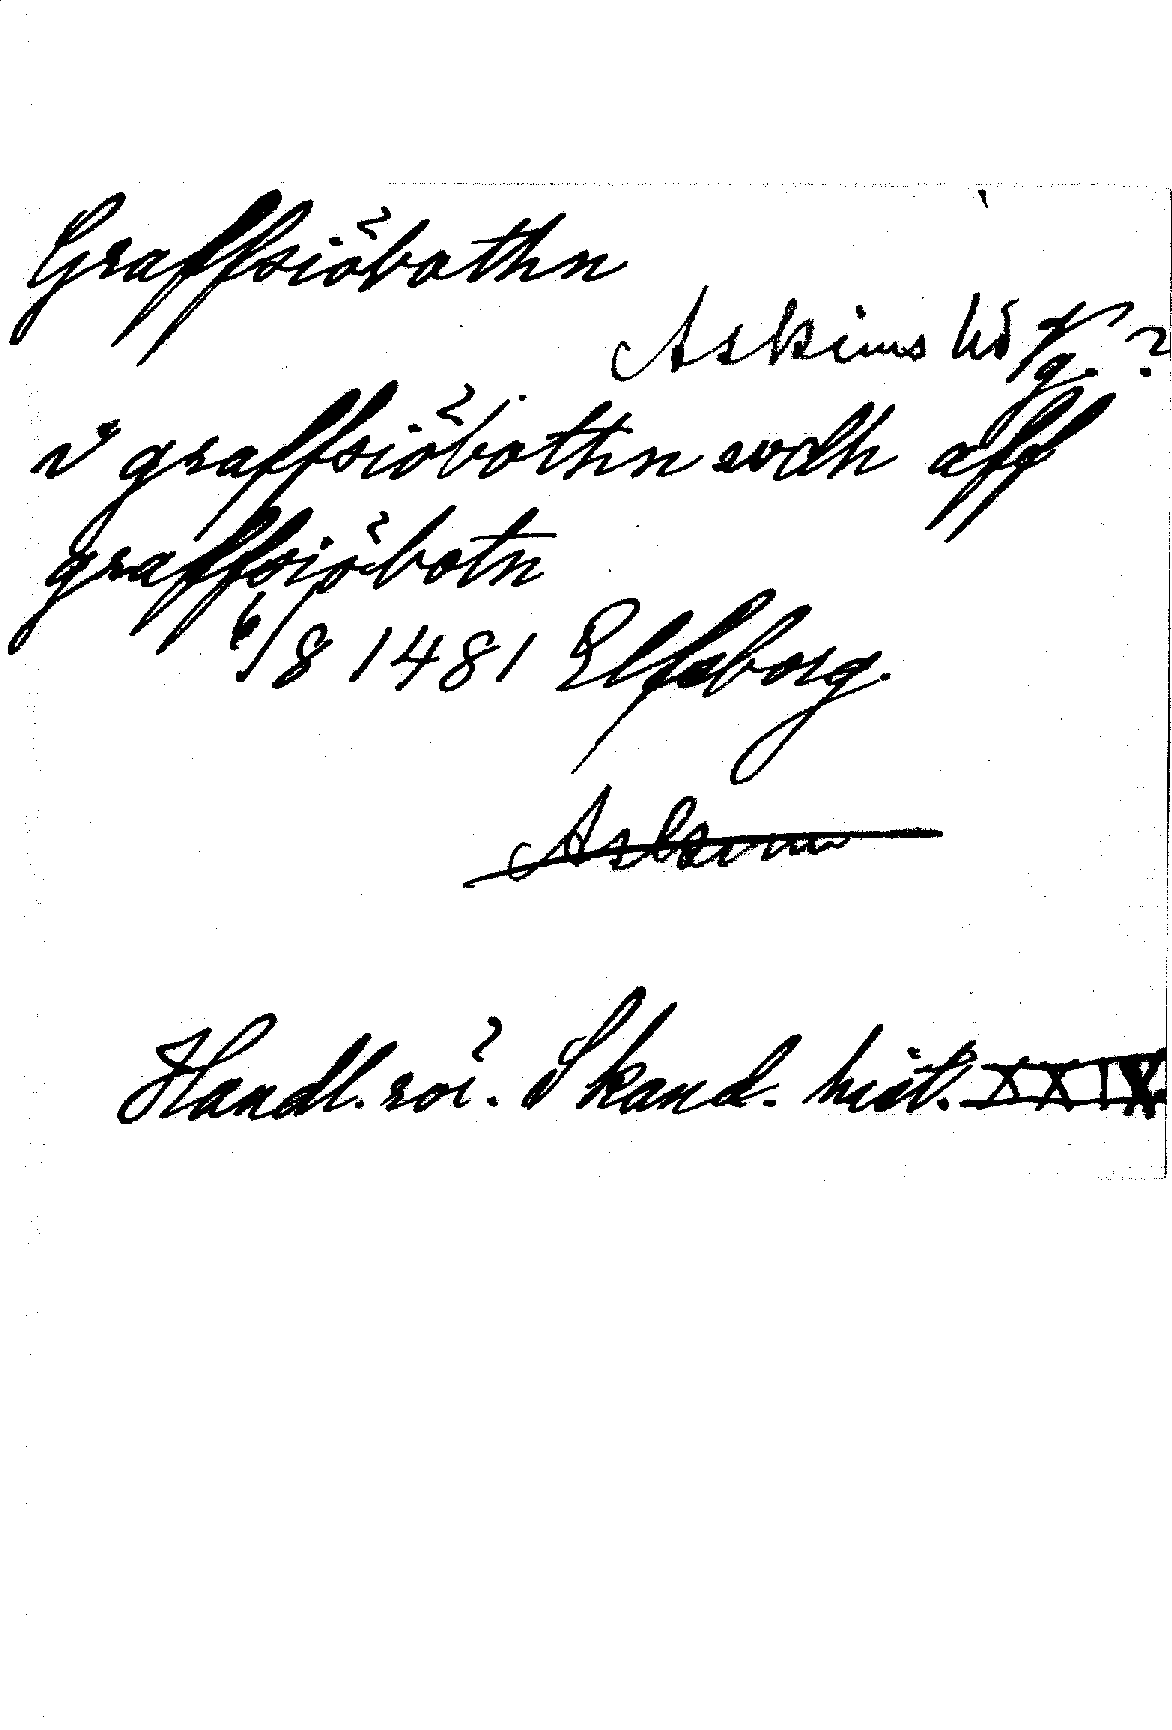 Graffsiöbothn
Askims hd Vg. ?
i graffsiöbothn evdh aff
graffsiöbotn
6/8 1481 Elfsborg.
Askim
Handl. rör. Skand. hist. XXIX